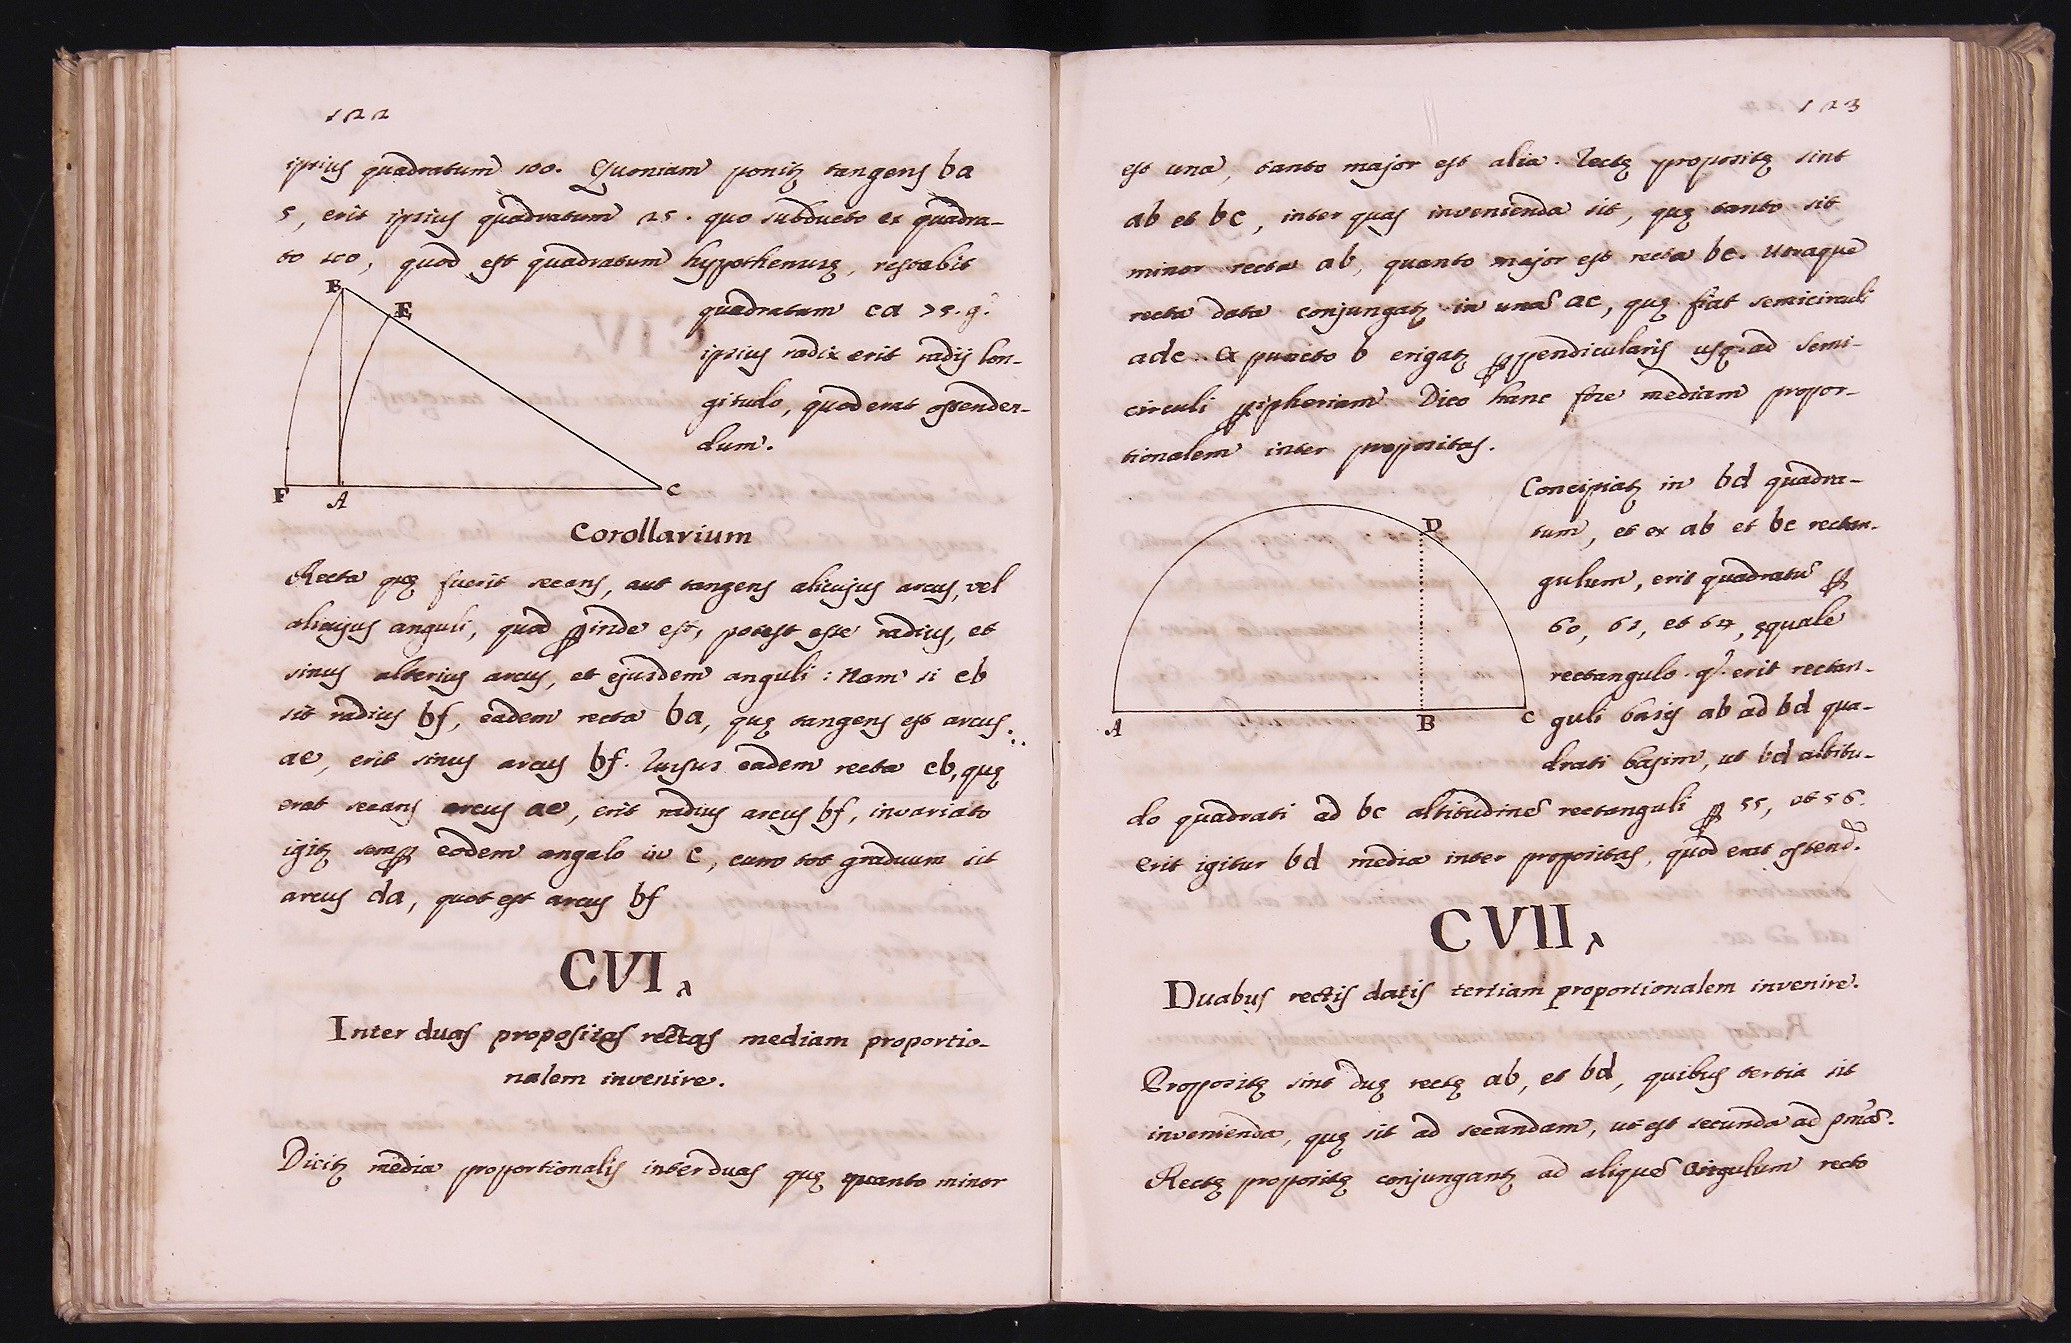 122
ipsius quadratum 100. Quoniam ponitȝ tangens ba
5, erit ipsius quadratum 25. quo subducto ex quadra-
to 100, quod est quadratum hypothenusę, restabit
quadratum ca 75. g.
ipsius radix erit radij lon-
gitudo, quod erat ostenden-
dum.
B
E
F
A
C
Corollarium
Recta quę fuerit secans, aut tangens alicujus arcus, vel
alicujus anguli, quod ꝑinde est, potest esse radius, et
sinus alterius arcus, et ejusdem anguli: Nam si cb
sit radius bf, eadem recta ba, quę tangens est arcus
ae, erit sinus arcus bf. Rursus eadem recta cb, quę
erat secans arcus ae, erit radius arcus bf, invariato
igitȝ semꝑ eodem angulo in c, cum tot graduum sit
arcus da, quot est arcus bf
CVI
Inter duas propositas rectas mediam proportio-
nalem invenire.
Dicitȝ media proportionalis inter duas quę quanto minor
123
est una, tanto major est alia. Rectę propositę sint
ab et bc, inter quas invenienda sit, quę tanto sit
minor recta ab, quanto major est recta bc. Utraque
recta data conjungatȝ in unã ac, quę fiat semicirculi
adc. Ex puncto b erigatȝ ꝑpendicularis usq. ad semi-
circuli ꝑipheriam Dico hanc fore mediam propor-
tionalem inter propositas.
Concipiatȝ in bd quadra-
tum, et ex ab et bc rectan-
gulum, erit quadratũ ꝑ
60, 61, et 64, ęquale
rectangulo. q. erit rectan-
guli basis ab ad bd qua-
drati basim, ut bd altitu-
D
A
B
C
do quadrati ad bc altitudinẽ rectanguli ꝑ 55, et 56.
erit igitur bd media inter propositas, quod erat ostend.
CVII
Duabus rectis datis tertiam proportionalem invenire.
Propositę sint duę rectę ab, et bd, quibus tertia sit
invenienda, quę sit ad secundam, ut est secunda ad pmã.
Rectę propositę conjungantȝ ad aliquẽ angulum recto